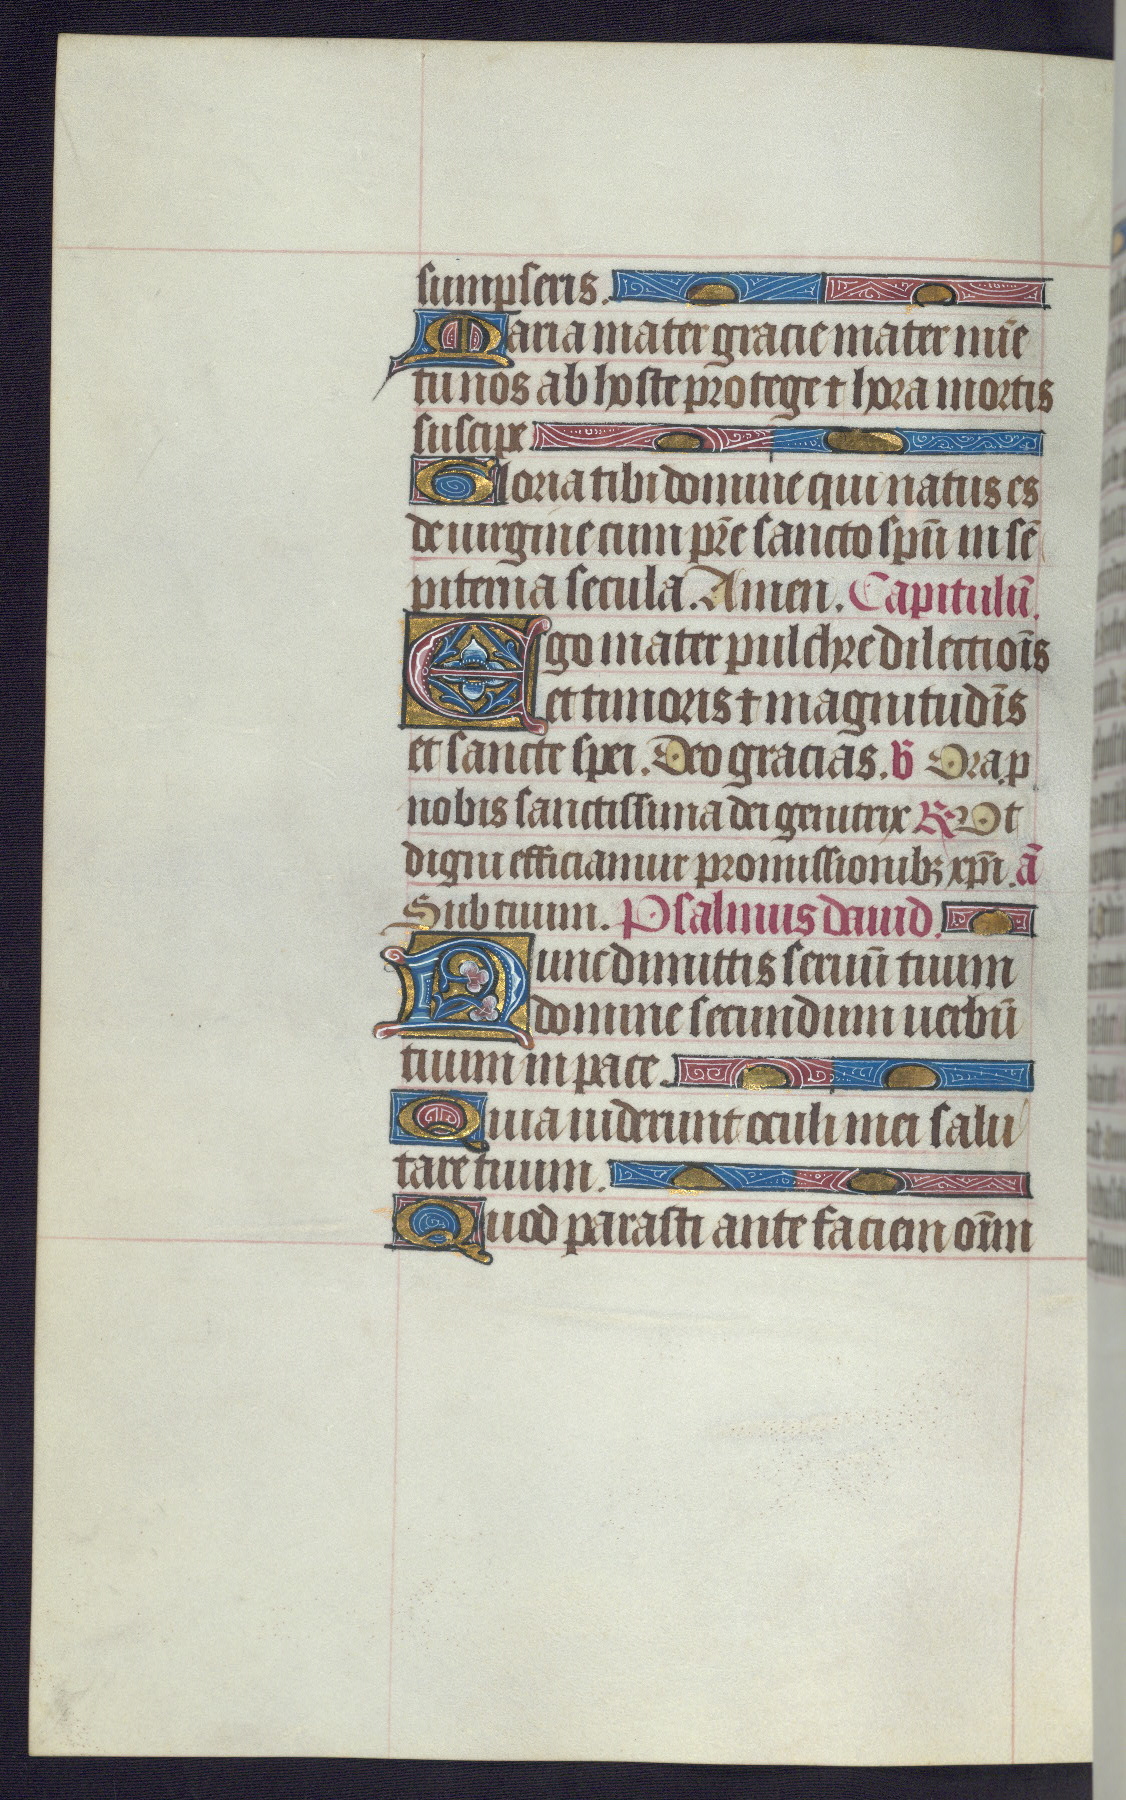 sumpseris.
Maria mater gracie mater mīe
tu nos ab hoste protege ⁊ hora mortis
suscipe
Gloria tibi domine qui natus es
de uirgine cum pr̄e sancto spū in sē
piterna secula. Amen. Capitulū.
Ego mater pulchre dilectiōis
et timoris ⁊ magnitudīs
et sancte spei. Deo gracias. ℣ Ora p
nobis sanctissima dei genitrix ℞ Vt
digni efficiamur promissionibꝫ xp̄i. ā
Sub tuum. Psalmus dauid.
Nunc dimittis seruū tuum
domine secundum uerbū
tuum in pace.
Quia uiderunt oculi mei salu
tare tuum.
Quod parasti ante faciem oīm